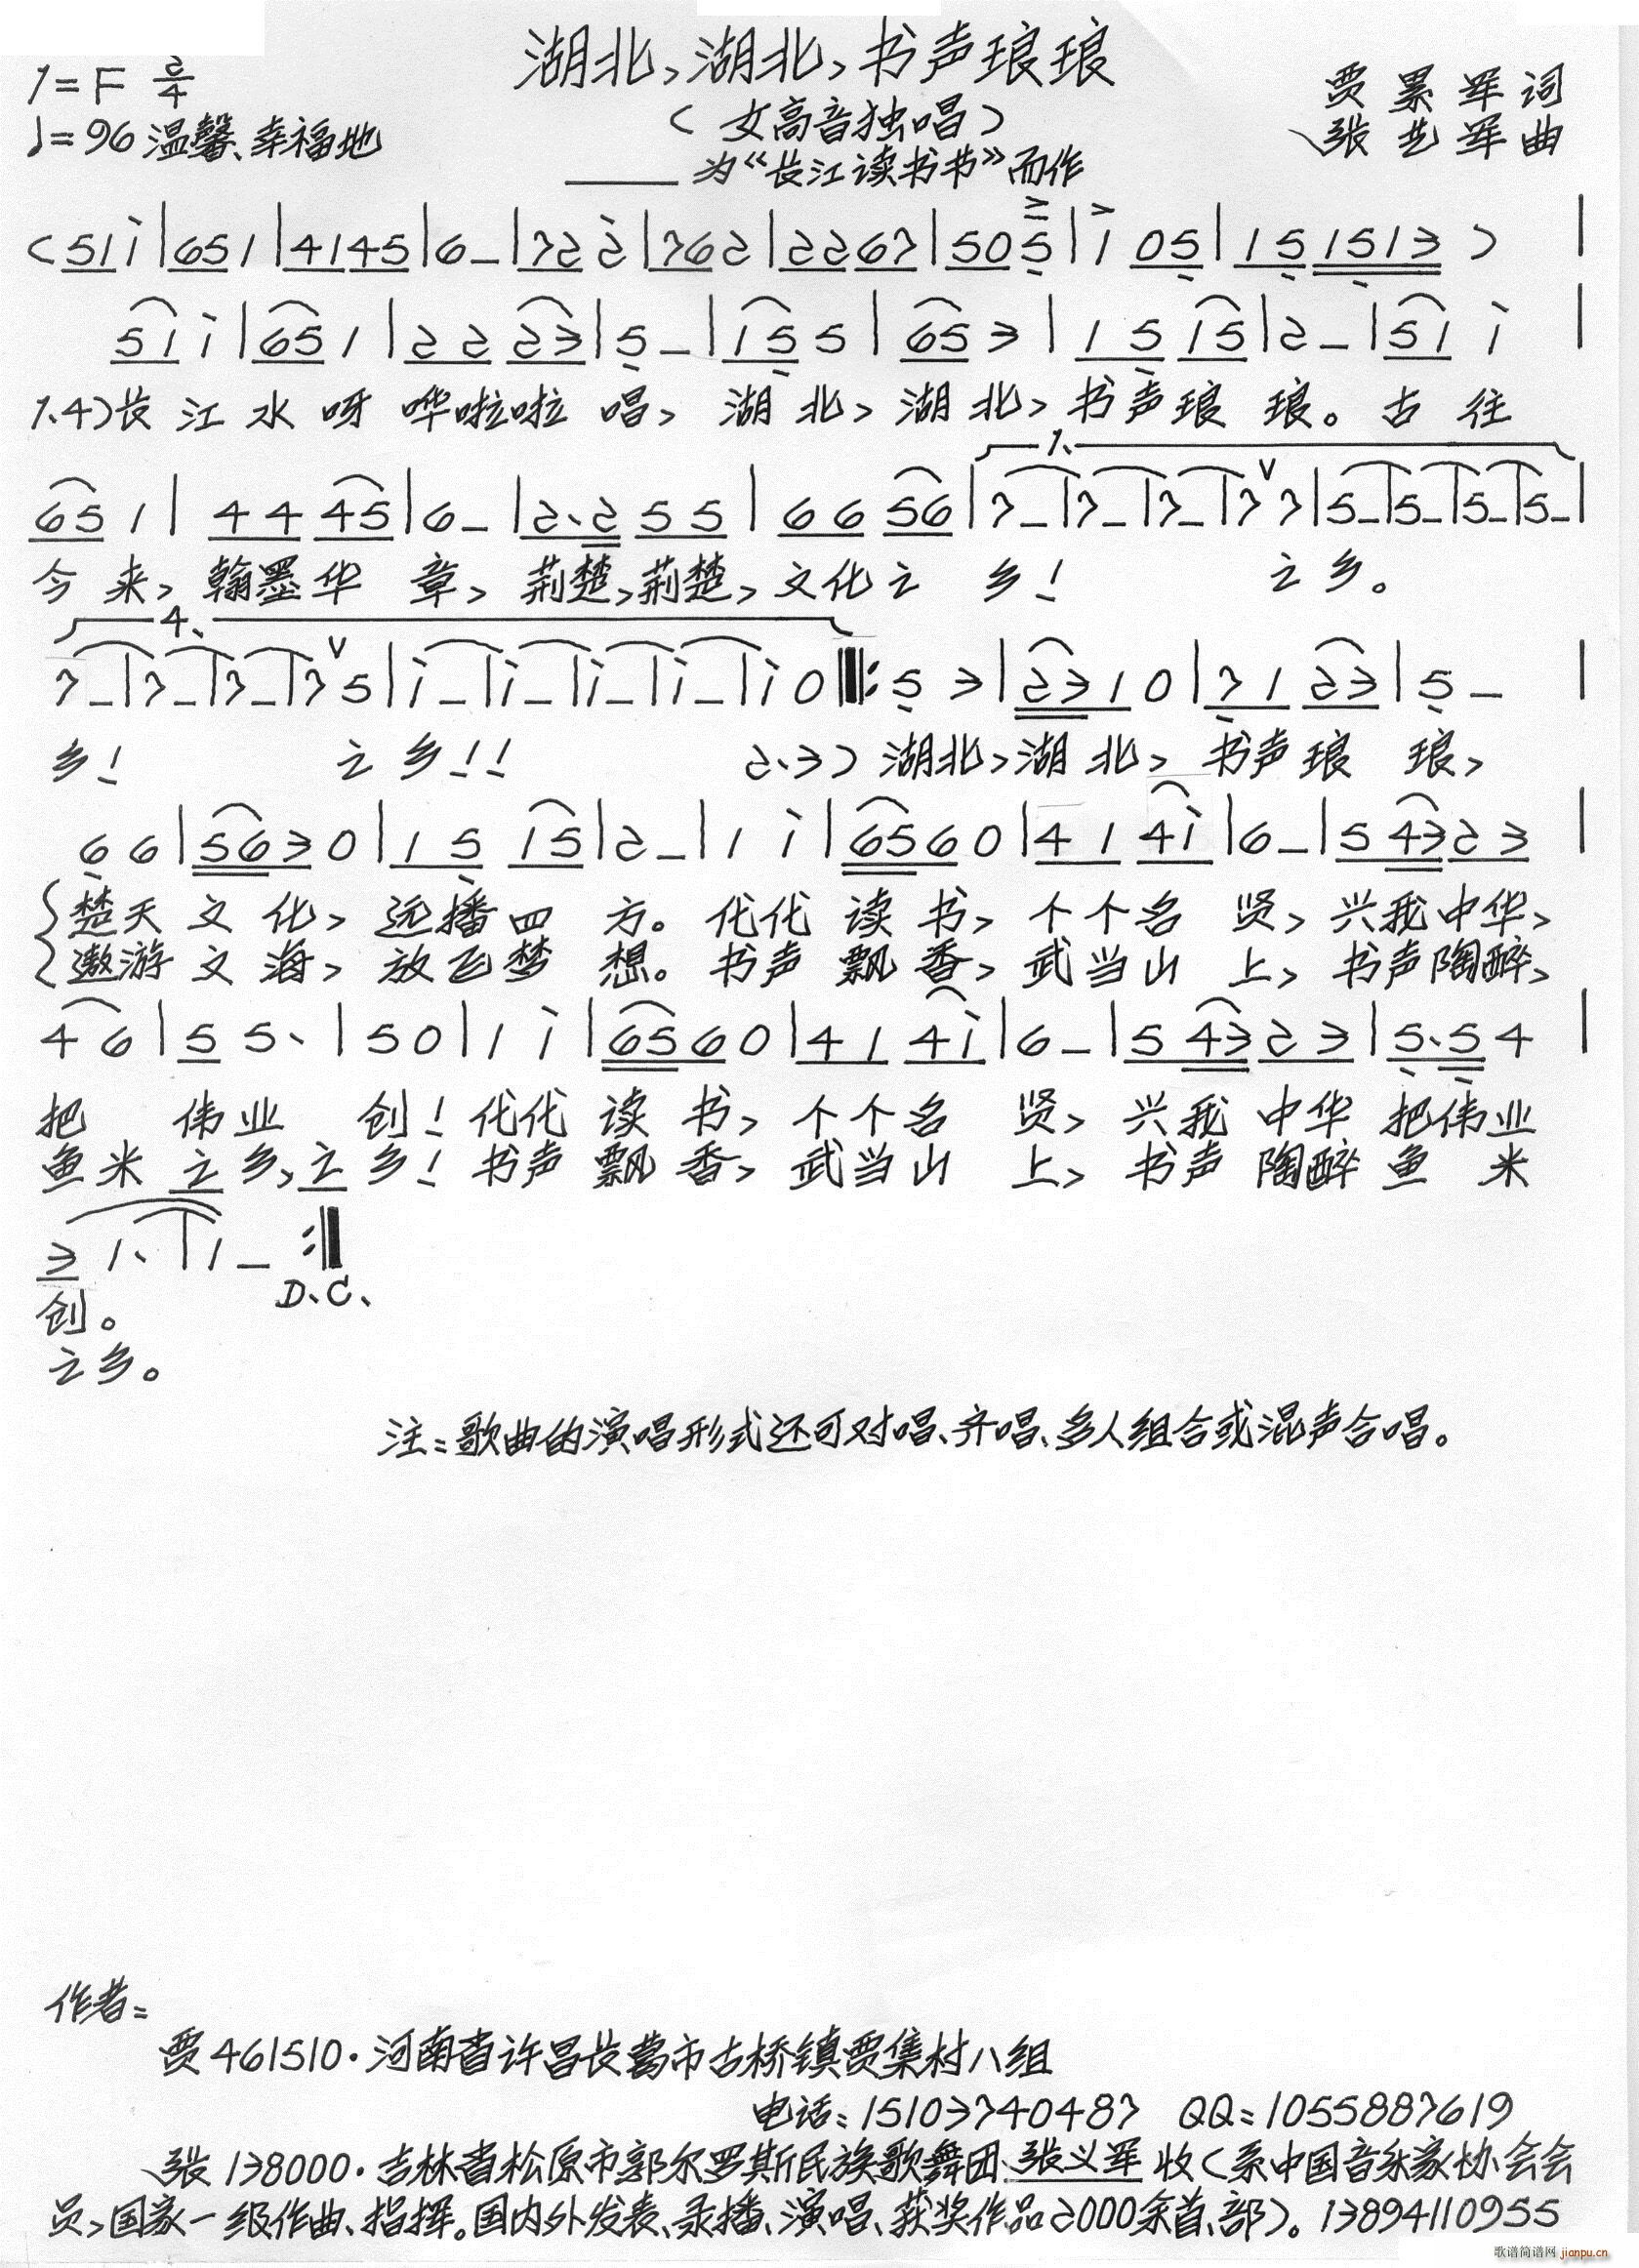 湖北，湖北，书声琅琅
1=F 2/4
贾累军词
（女高音独唱）
♩=96 温馨、幸福地
张艺军曲
——为“长江读书节”而作
( 5 1 i | 6 5 1 | 4 1 4 5 | 6 - | 7 2 2 | 7 6 2 | 2 2 6 7 | 5 0 5 | i 0 5 | 1 5 1 5 1 3 ) |
5 1 i | 6 5 1 | 2 2 2 3 | 5 - | 1 5 5 | 6 5 3 | 1 5 1 5 | 2 - | 5 1 i |
1.4)长江水呀哗啦啦唱，湖北，湖北，书声琅琅。古往
1.
6 5 1 | 4 4 4 5 | 6 - | 2. 2 5 5 | 6 6 5 6 | 7 - | 7 - | 7 - | 7 V 7 | 5 - | 5 - | 5 - | 5 - |
今来，翰墨华章，荆楚，荆楚，文化之乡！之乡。
4.
7 - | 7 - | 7 - | 7 V 5 | i - | i - | i - | i - | i 0 |: 5 3 | 2 3 1 0 | 7 1 2 3 | 5 - |
乡！之乡！！2.3)湖北，湖北，书声琅琅，
6 6 | 5 6 3 0 | 1 5 1 5 | 2 - | 1 i | 6 5 6 0 | 4 1 4 i | 6 - | 5 4 3 2 3 |
楚天文化，远播四方。代代读书，个个名贤，兴我中华，
遨游文海，放飞梦想。书声飘香，武当山上，书声陶醉，
4 6 | 5 5. | 5 0 | 1 i | 6 5 6 0 | 4 1 4 i | 6 - | 5 4 3 2 3 | 5. 5 4 |
把伟业创！代代读书，个个名贤，兴我中华把伟业
鱼米之乡，之乡！书声飘香，武当山上，书声陶醉鱼米
3 1. | 1 - :|
D.C.
创。
之乡。
注：歌曲的演唱形式还可对唱、齐唱、多人组合或混声合唱。
作者：
贾461510·河南省许昌长葛市古桥镇贾集村八组
电话：15103740487 QQ：1055887619
张138000·吉林省松原市郭尔罗斯民族歌舞团 张义军 收（系中国音乐家协会会
员，国家一级作曲、指挥。国内外发表、录播、演唱、获奖作品2000余首、部）。13894110955
歌谱简谱网 jianpu.cn